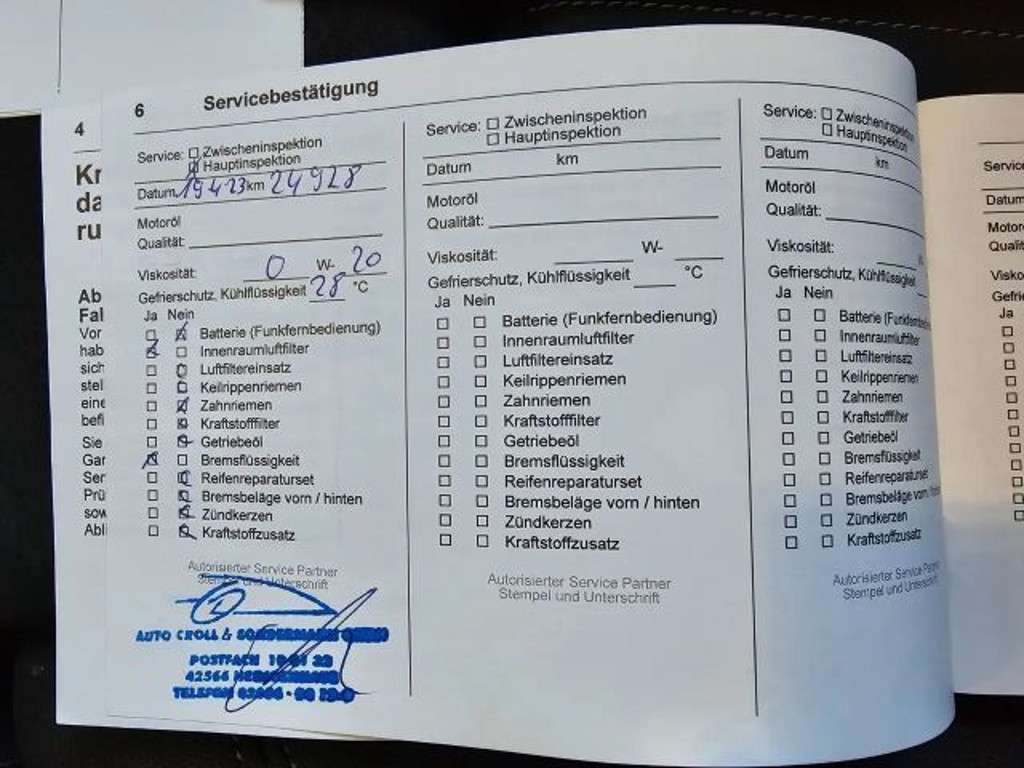 6 Servicebestätigung
Service: Zwischeninspektion
Hauptinspektion
Datum 19 4 23 km 24 928
Motoröl
Qualität:
Viskosität: 0 W- 20
Gefrierschutz, Kühlflüssigkeit 28 °C
Ja Nein
Batterie (Funkfernbedienung)
Innenraumluftfilter
Luftfiltereinsatz
Keilrippenriemen
Zahnriemen
Kraftstofffilter
Getriebeöl
Bremsflüssigkeit
Reifenreparaturset
Bremsbeläge vorn / hinten
Zündkerzen
Kraftstoffzusatz
Autorisierter Service Partner
Stempel und Unterschrift
AUTO CROLL & SONDERMANN GMBH
POSTFACH
42566
TELEFON
Service: Zwischeninspektion
Hauptinspektion
Datum km
Motoröl
Qualität:
Viskosität: W-
Gefrierschutz, Kühlflüssigkeit °C
Ja Nein
Batterie (Funkfernbedienung)
Innenraumluftfilter
Luftfiltereinsatz
Keilrippenriemen
Zahnriemen
Kraftstofffilter
Getriebeöl
Bremsflüssigkeit
Reifenreparaturset
Bremsbeläge vorn / hinten
Zündkerzen
Kraftstoffzusatz
Autorisierter Service Partner
Stempel und Unterschrift
Service: Zwischeninspektion
Hauptinspektion
Datum km
Motoröl
Qualität:
Viskosität: W-
Gefrierschutz, Kühlflüssigkeit
Ja Nein
Batterie (Funkfernbedie
Innenraumluftfilter
Luftfiltereinsatz
Keilrippenriemen
Zahnriemen
Kraftstofffilter
Getriebeöl
Bremsflüssigkeit
Reifenreparaturset
Bremsbeläge vorn / hinten
Zündkerzen
Kraftstoffzusatz
Autorisierter Service Partner
Stempel und Unterschrift
4
Kr
da
ru
Ab
Fal
Vor
hab
sich
stel
eine
befi
Sie
Gar
Ser
Prü
sow
Abli
Service
Datum
Motor
Qualit
Visko
Gefri
Ja